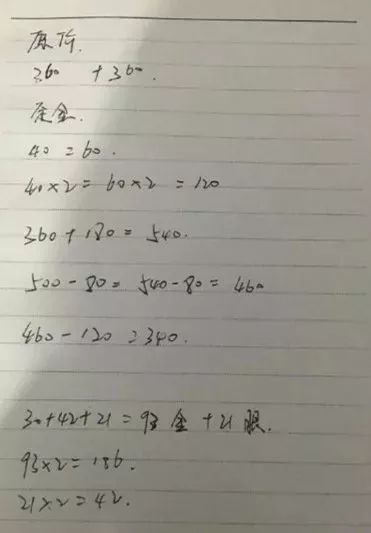 原价.
360 +360.
定金.
40 = 60.
40×2 = 60×2 = 120
360+180 = 540.
500-80 = 540-80 = 460
460-120 = 340.
30+42+21 = 93 金 +21 眼.
93×2 = 186.
21×2 = 42.